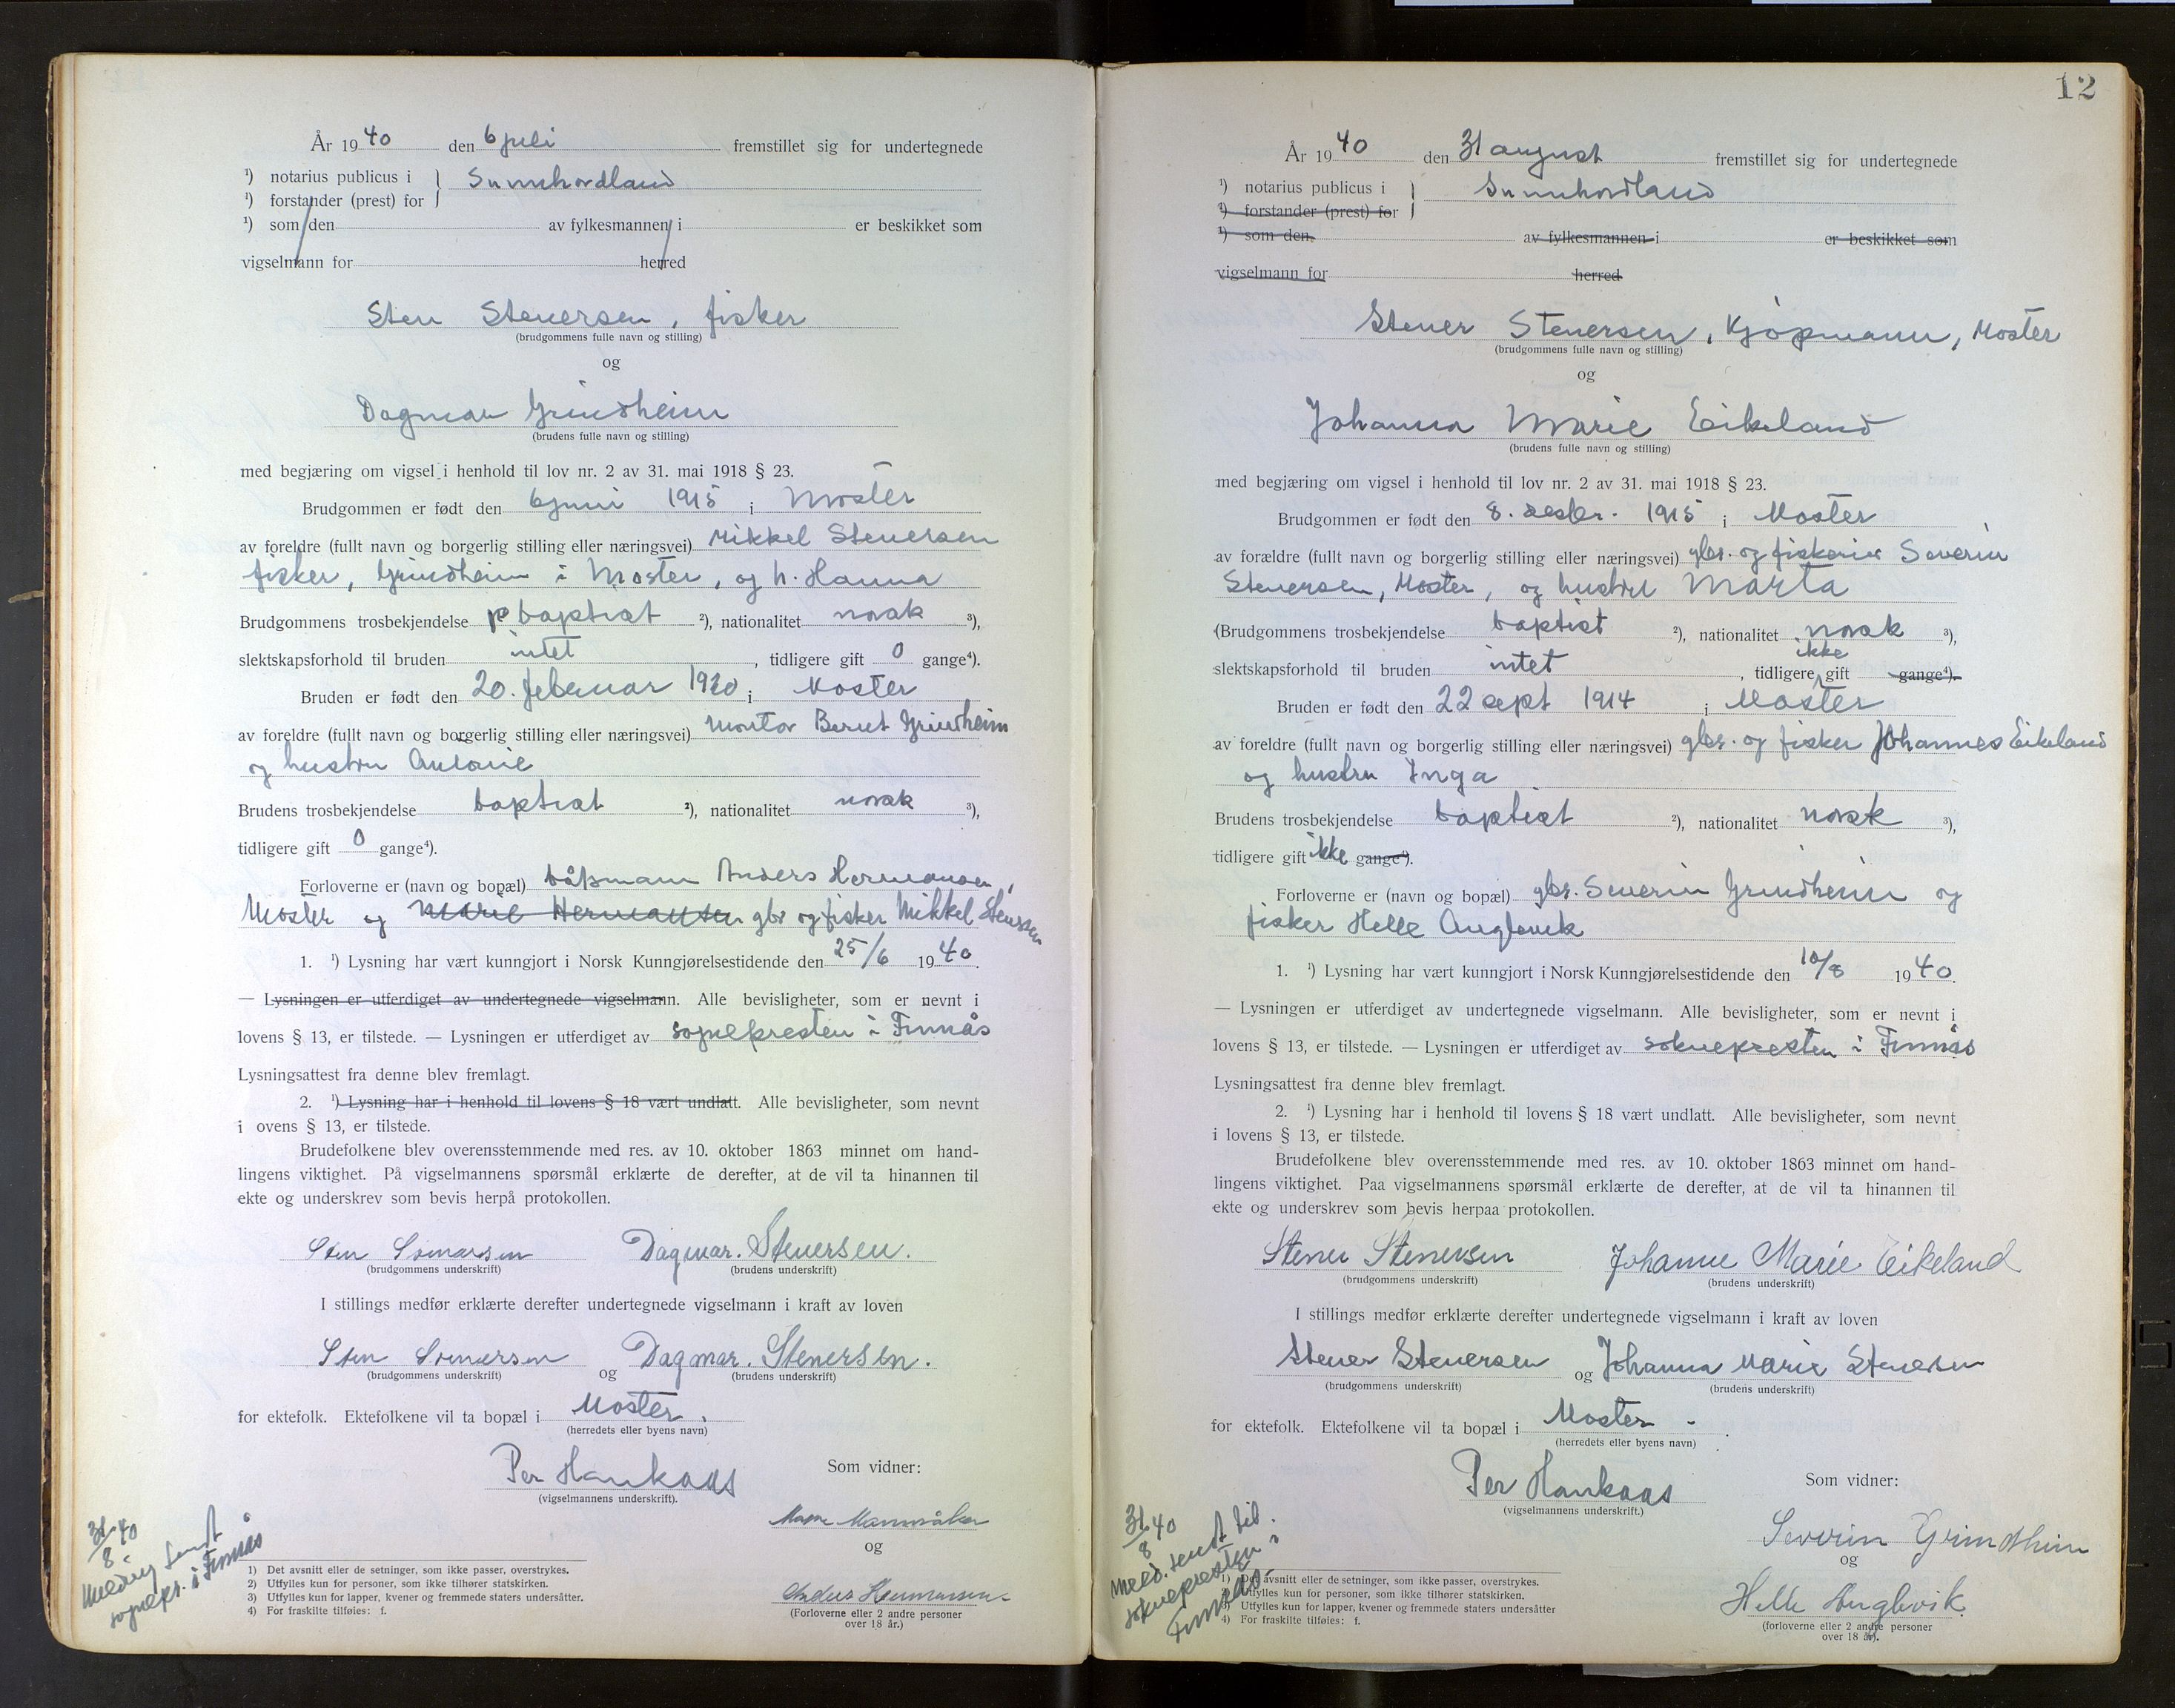 År 1940 den 6 juli fremstillet sig for undertegnede
¹) notarius publicus i } Sunnhordland
¹) forstander (prest) for
¹) som den av fylkesmannen i er beskikket som
vigselmann for herred
Sten Stenersen, fisker
(brudgommens fulle navn og stilling)
og
Dagmar Grindheim
(brudens fulle navn og stilling)
med begjæring om vigsel i henhold til lov nr. 2 av 31. mai 1918 § 23.
Brudgommen er født den 6 juni 1915 i Moster
av foreldre (fullt navn og borgerlig stilling eller næringsvei) Mikkel Stenersen
fisker, Grindheim i Moster, og h. Hanna
Brudgommens trosbekjendelse baptist ²), nationalitet norsk ³),
slektskapsforhold til bruden intet , tidligere gift 0 gange⁴).
Bruden er født den 20. februar 1920 i Moster
av foreldre (fullt navn og borgerlig stilling eller næringsvei) montør Bernt Grindheim
og hustru Antonie
Brudens trosbekjendelse baptist ²), nationalitet norsk ³),
tidligere gift 0 gange⁴).
Forloverne er (navn og bopæl) Anders Hermansen,
Moster og Marie Hermansen gbr og fisker Mikkel Stenersen
1. ¹) Lysning har vært kunngjort i Norsk Kunngjørelsestidende den 25/6 1940.
— Lysningen er utferdiget av undertegnede vigselmann. Alle bevisligheter, som er nevnt i
lovens § 13, er tilstede. — Lysningen er utferdiget av sognepresten i Finnås
Lysningsattest fra denne blev fremlagt.
2. ¹) Lysning har i henhold til lovens § 18 vært undlatt. Alle bevisligheter, som nevnt
i ovens § 13, er tilstede.
Brudefolkene blev overensstemmende med res. av 10. oktober 1863 minnet om hand-
lingens viktighet. På vigselmannens spørsmål erklærte de derefter, at de vil ta hinannen til
ekte og underskrev som bevis herpå protokollen.
Sten Stenersen Dagmar. Stenersen.
(brudgommens underskrift) (brudens underskrift)
I stillings medfør erklærte derefter undertegnede vigselmann i kraft av loven
Sten Stenersen og Dagmar. Stenersen.
(brudgommens underskrift) (brudens underskrift)
for ektefolk. Ektefolkene vil ta bopæl i Moster.
(herredets eller byens navn)
Per Haukaas Som vidner:
(vigselmannens underskrift).
og
Anders Hermansen
(Forloverne eller 2 andre personer
over 18 år.)
31/8 40
Melding sendt
sognepr. i Finnås
1) Det avsnitt eller de setninger, som ikke passer, overstrykes.
2) Utfylles kun for personer, som ikke tilhører statskirken.
3) Utfylles kun for lapper, kvener og fremmede staters undersåtter.
4) For fraskilte tilføies: f.
12
År 1940 den 31 august fremstillet sig for undertegnede
¹) notarius publicus i } Sunnhordland
¹) forstander (prest) for
¹) som den av fylkesmannen i er beskikket som
vigselmann for herred
Stener Stenersen, Kjøpmann, Moster
(brudgommens fulle navn og stilling)
og
Johanna Marie Eikeland
(brudens fulle navn og stilling)
med begjæring om vigsel i henhold til lov nr. 2 av 31. mai 1918 § 23.
Brudgommen er født den 8. desbr. 1915 i Moster
av forældre (fullt navn og borgerlig stilling eller næringsvei) gbr. og fisker Severin
Stenersen, Moster, og hustru Marta
(Brudgommens trosbekjendelse baptist ²), nationalitet norsk ³),
slektskapsforhold til bruden intet , tidligere ikke gift gange⁴).
Bruden er født den 22 sept 1914 i Moster
av foreldre (fullt navn og borgerlig stilling eller næringsvei) gbr. og fisker Johannes Eikeland
og hustru Inga
Brudens trosbekjendelse baptist ²), nationalitet norsk ³),
tidligere gift ikke gange⁴).
Forloverne er (navn og bopæl) gbr. Severin Grindheim og
fisker Helle Auglevik
1. ¹) Lysning har vært kunngjort i Norsk Kunngjørelsestidende den 10/8 1940.
— Lysningen er utferdiget av undertegnede vigselmann. Alle bevisligheter, som er nevnt i
lovens § 13, er tilstede. — Lysningen er utferdiget av soknepresten i Finnås
Lysningsattest fra denne blev fremlagt.
2. ¹) Lysning har i henhold til lovens § 18 vært undlatt. Alle bevisligheter, som nevnt
i lovens § 13, er tilstede.
Brudefolkene blev overensstemmende med res. av 10. oktober 1863 minnet om hand-
lingens viktighet. Paa vigselmannens spørsmål erklærte de derefter, at de vil ta hinannen til
ekte og underskrev som bevis herpaa protokollen.
Stener Stenersen Johanne Marie Eikeland
(brudgommens underskrift) (brudens underskrift)
I stillings medfør erklærte derefter undertegnede vigselmann i kraft av loven
Stener Stenersen og Johanna Marie Stenersen
(brudgommens underskrift) (brudens underskrift)
for ektefolk. Ektefolkene vil ta bopæl i Moster.
(herredets eller byens navn)
Per Haukaas Som vidner:
(vigselmannens underskrift.)
Severin Grindheim
og
Helle Auglevik
(forloverne eller 2 andre personer
over 18 år).
31/8 40
Meld. sendt til
soknepresten i
Finnaas.
1) Det avsnitt eller de setninger, som ikke passer, overstrykes.
2) Utfylles kun for personer, som ikke tilhører statskirken.
3) Utfylles kun for lapper, kvener og fremmede staters undersåtter
4) For fraskilte tilføies: f.